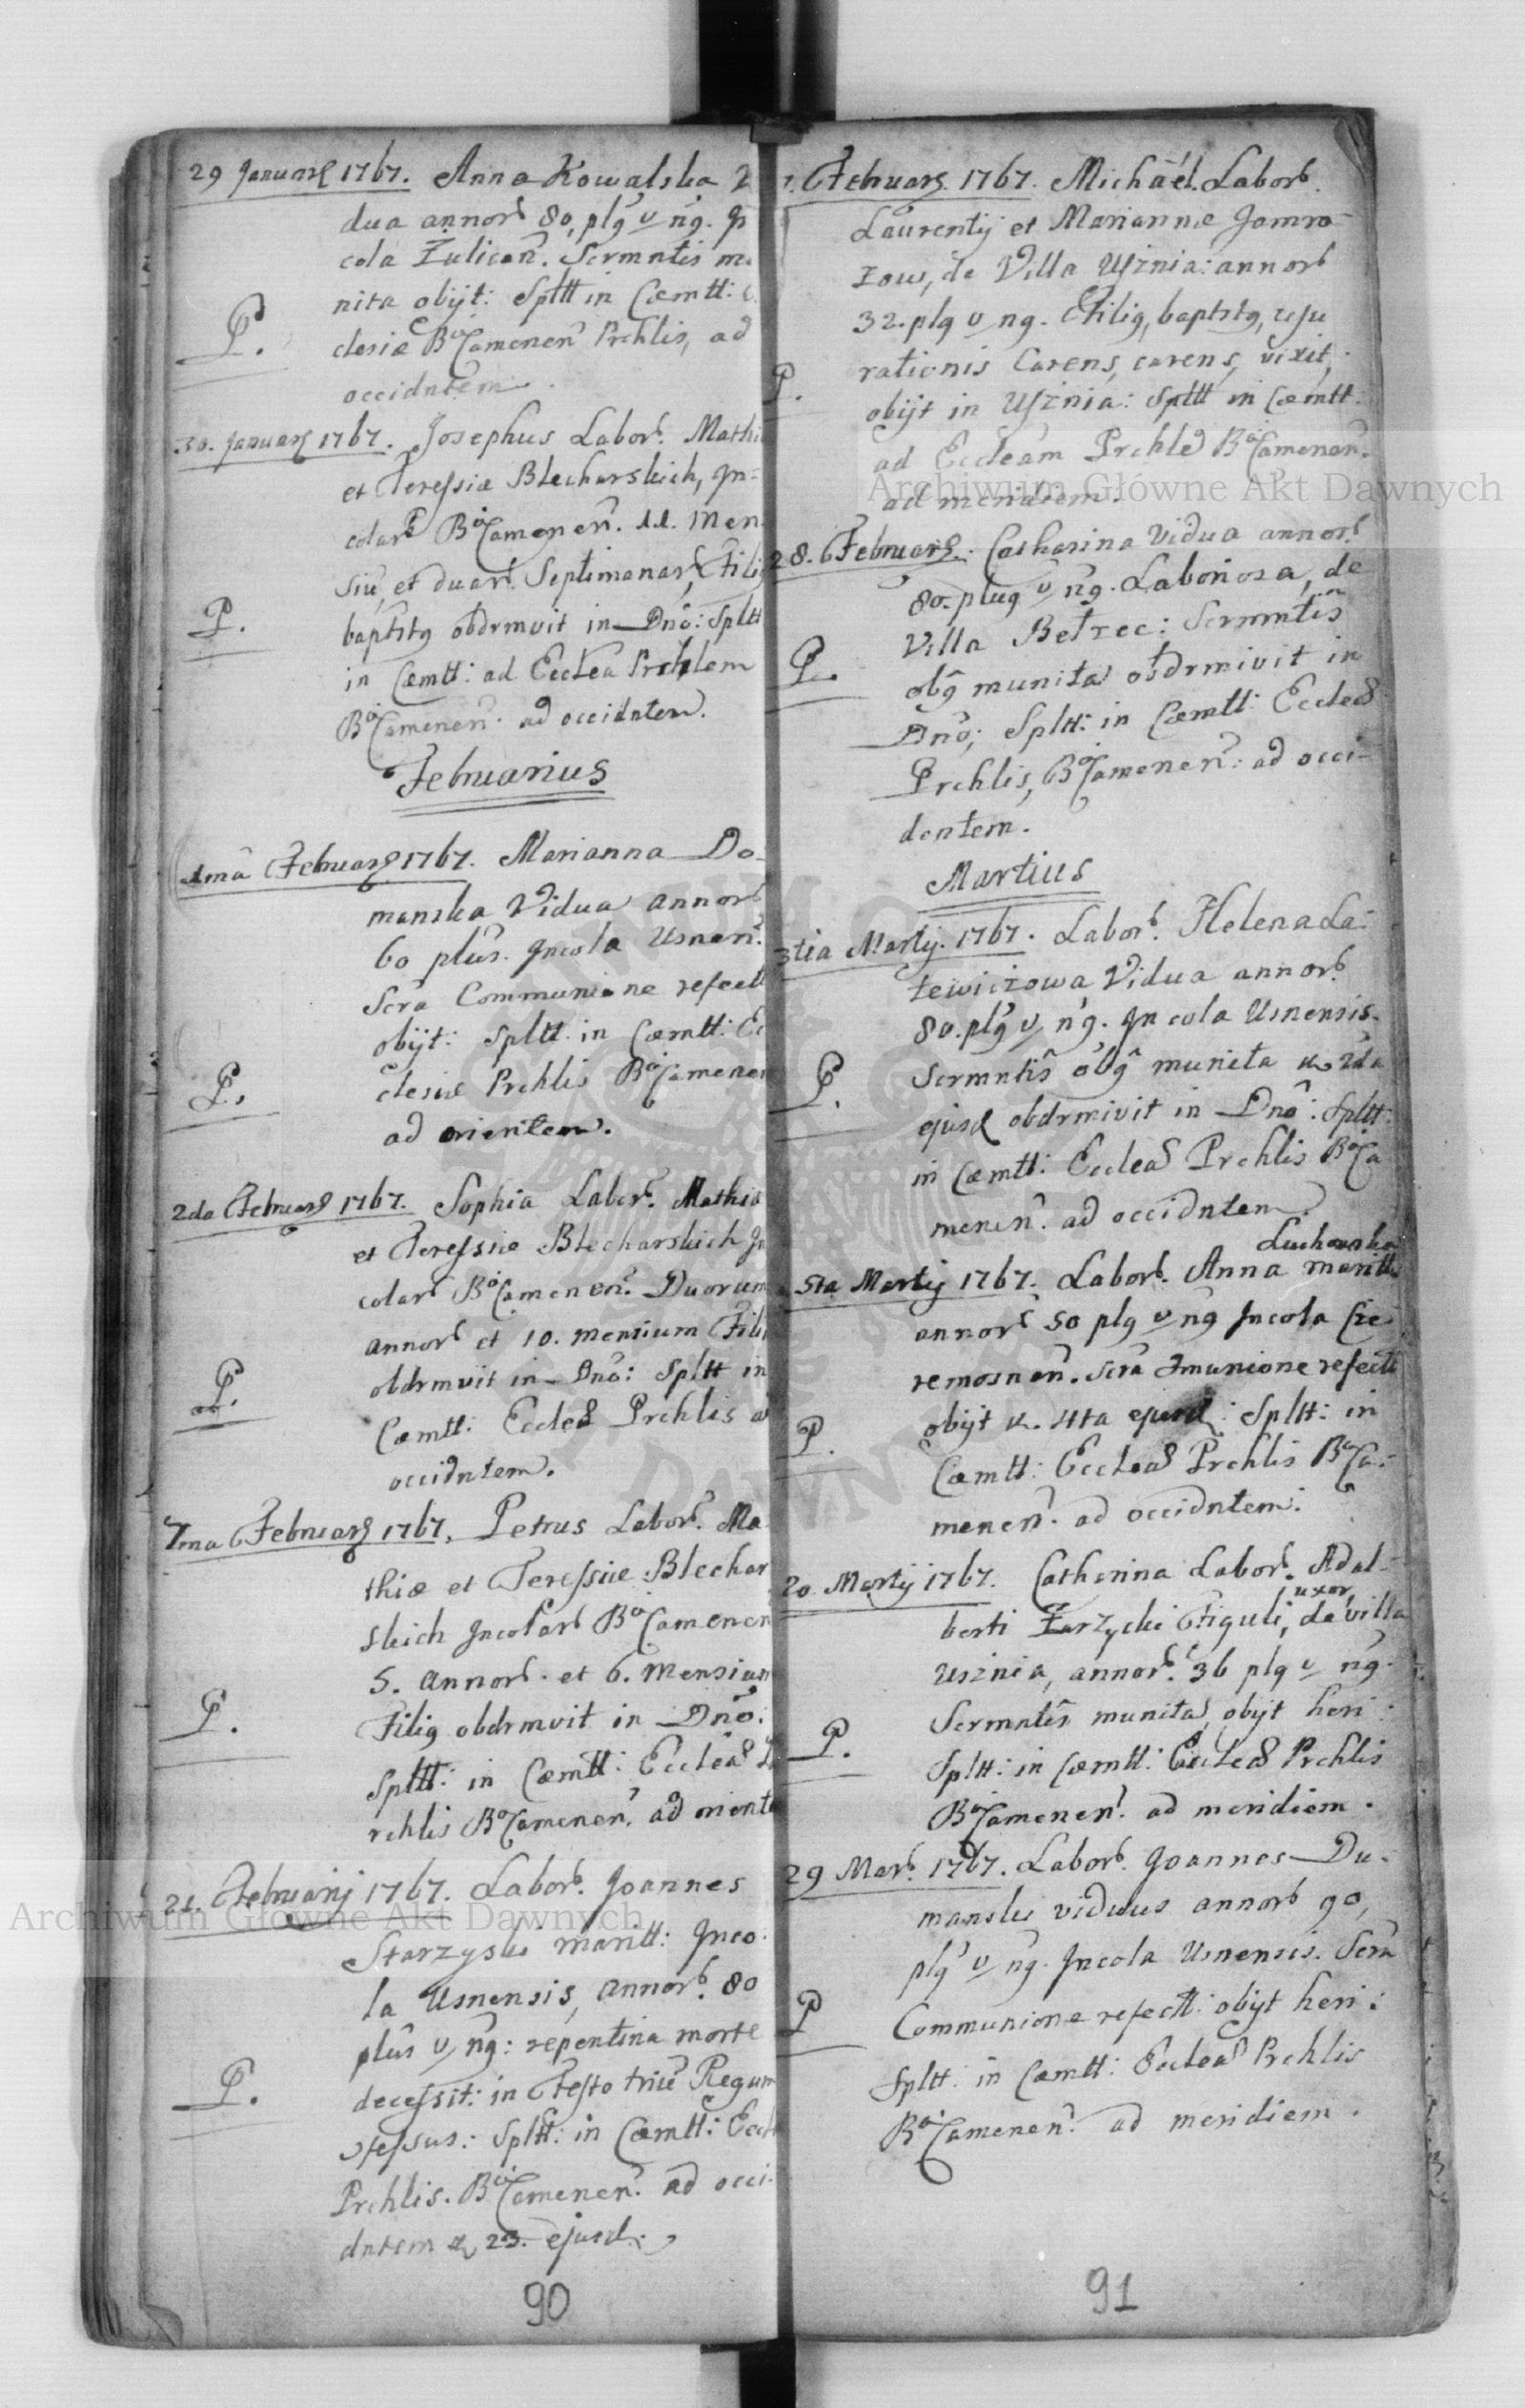 29 Januarӯ 1767. Anna Kowalska
dua annorˢ 80, plg v ng. In
cola Zulicen. Scrmntis mu
nita obijt: Spltt in Cœmtt:
clesiæ BoCamenen Prchlis, ad
P.
occidntem.
30. Januarӯ 1767. Josephus Labor. Mathi
et Teressiæ Blecharskich, In-
colarˢ BoCamenen. 11. Men
siu, et duar. Septimanar, Fili
P.
baptstg obdrmvit in Dno: Spltt
in Cœmtt: ad Ecclea Prchlem
BoCamenen. ad occidntem.
Februarius
1ma Februarӯ 1767. Marianna Do-
manska Vidua annorˢ
60 plus. Incola Usnen.
Scra Communione refectt
obijt: Spltt. in Cœmtt: Ec
clesiæ Prchlis BoCamenen
P.
ad orientem.
2da Februarӯ 1767. Sophia Labor. Mathiæ
et Teressiæ Blecharskich In
colarˢ BoCamenen. Duorum
annorˢ et 10. mensium Fili
obdrmvit in Dno: Spltt in
P.
Cœmtt: Eccleæ Prchlis ad
occidntem.
7ma Februarӯ 1767, Petrus Labor. Ma
thiæ et Teressiæ Blechar
skich Incolarˢ BoCamenen
5. annorˢ. et 6. mensium
P.
Filig obdrmvit in Dno:
Spltt: in Cœmtt: Eccleæ
rchlis BoCamenen. ad oriente
21. Februarij 1767. Labor. Joannes
Starzyski maritt: Inco-
la Usnensis, annor. 80
plus v ng: repentina morte
P.
decessit: in Festo triu Regum
Spltt: in Cœmtt: Eccl
Prchlis. BoCamenen. ad occi-
dntem 23. ejusd.
90
Februarӯ. 1767. Michael. Labor.
Laurentij et Mariannæ Jamro-
zow, de Villa Usznia: annorˢ
32. plg v ng. Filig, baptstg, usu
rationis Carens, carens, vixit,
P.
obijt in Usznia: Spltt in Cœmtt:
ad Eccleam Prchle BoCamenen.
ad meridiem.
28. Februarӯ. Catharina Vidua annor.
80. plug v ng. Laboriosa, de
Villa Bełzec: Scrmntis
P.
obg munita obdrmivit in
Dno; Spltt: in Cœmtt: Eccleæ
Prchlis, BoCamenen: ad occi-
dentem.
Martius
3tia Martij. 1767. Labor. Helena La-
tewiczowa Vidua annor.
80. plg v ng. Incola Usnensis.
P.
Scrmntis obg munita 2da
ejusd obdrmivit in Dno: Spltt:
in Cœmtt: Eccleæ Prchlis BoCa
menen. ad occidntem.
Luchowska
5ta Martij 1767. Labor. Anna maritt
annorˢ 50 plg v ng Incola Cze
remosnen. Scra Cmunione refectt
P.
obijt 4ta ejusd: Spltt: in
Cœmtt: Eccleæ Prchlis BoCa-
menen. ad occidntem.
20. Martij 1767. Catharina Labor. Adal-
uxor
berti Zarzycki Figuli, de villa
Usznia, annor. 36 plg v ng.
P.
Scrmntis munita, obijt heri:
Spltt: in Cœmtt: Eccleæ Prchlis
BoCamenen. ad meridiem.
29 Mar. 1767. Labor. Joannes Du-
manski viduus annorˢ 90,
plg v ng. Incola Usnensis. Scra
P
Communione refectt: obijt heri:
Spltt: in Cœmtt: Eccleæ Prchlis
BoCamenen. ad meridiem.
91
Archiwum Główne Akt Dawnych
Archiwum Główne Akt Dawnych